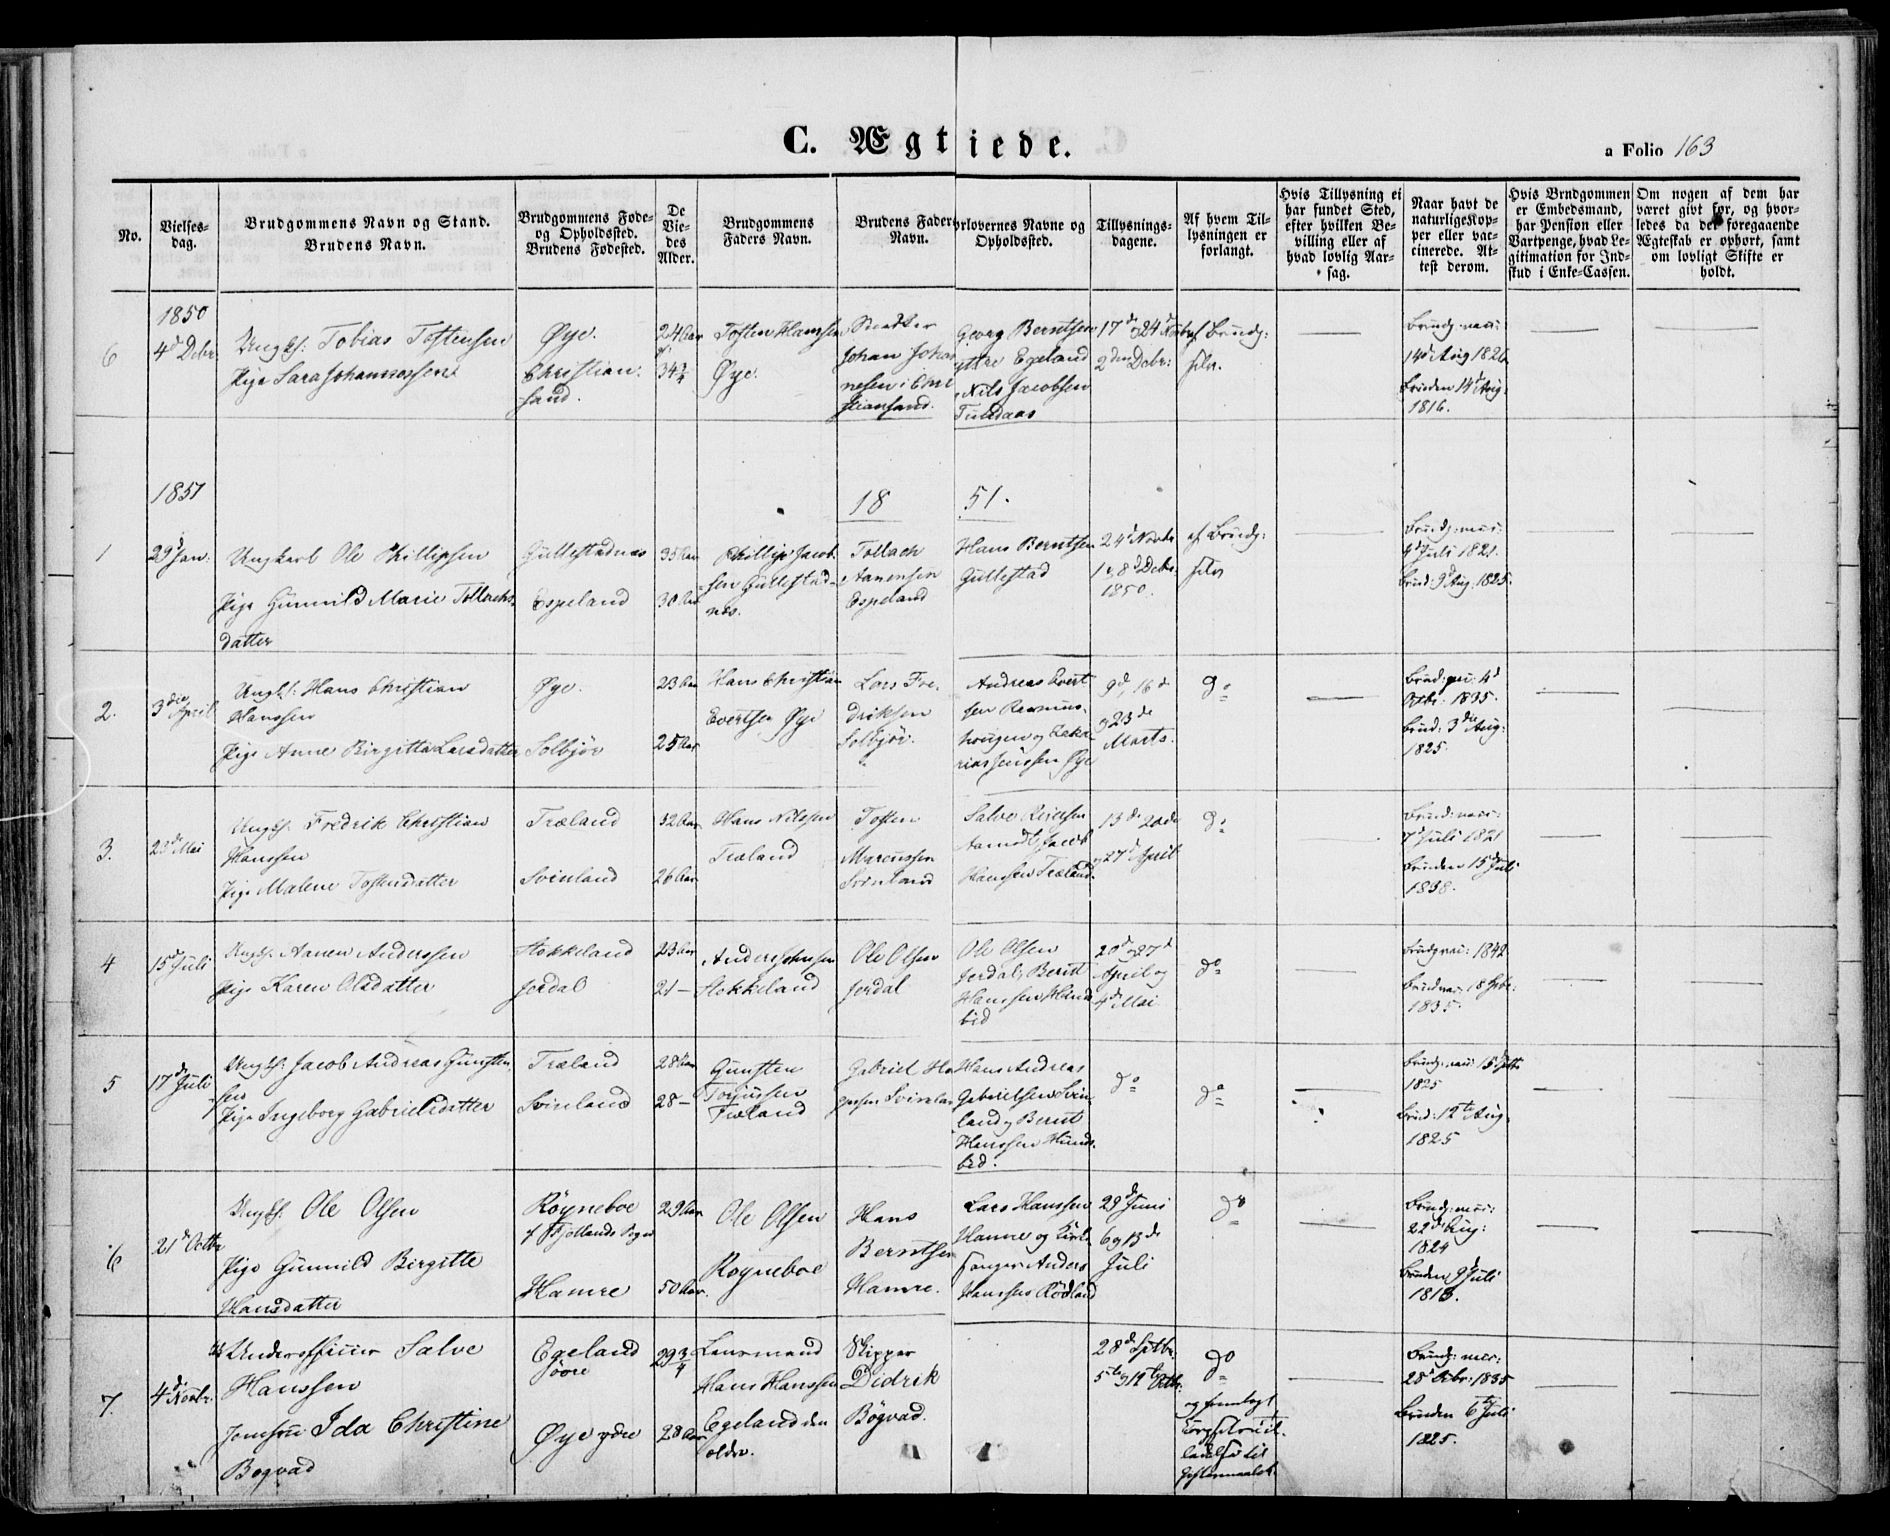 C. Ægtviede.
a Folio 163
No.
Vielses-
dag.
Brudgommens Navn og Stand.
Brudens Navn.
Brudgommens Føde-
og Opholdssted.
Brudens Fødested.
De
Vie-
des
Alder.
Brudgommens
Faders Navn.
Brudens Faders
Navn.
Forlovernes Navne og
Opholdssted.
Tillysnings-
dagene.
Af hvem Til-
lysningen er
forlangt.
Hvis Tillysning ei
har fundet Sted,
efter hvilken Be-
villing eller af
hvad lovlig Aar-
sag.
Naar havt de
naturlige Kop-
per eller vac-
cinerede. At-
test derom.
Hvis Brudgommen
er Embedsmand,
har Pension eller
Vartpenge, hvad Le-
gitimation for Ind-
skud i Enke-Cassen.
Om nogen af dem har
været givt før, og hvor-
ledes da det foregaaende
Ægteskab er ophørt, samt
om lovligt Skifte er
holdt.
1850
6
4d Debr
Ungk: Tobias Tostensen
Pige Sara Johannessen
Øye.
Christian
sand.
24 Aar
34 3/4
Tosten Hanssen
Øye.
Johan Johan
nesen i Chri
stiansand.
Georg Berntsen
yttre Egeland
Nils Jacobsen
17de 24d
2den Debr:
af Brudg:
selv.
Brudg. vacc:
14d Aug 1826
Bruden 14d Aug:
1816.
1851
18 51.
1
29d Jan:
Ungkarl Ole Phillipsen
Pige Gunnild Marie Tollachs
datter
Gullestadnæs
Espeland
35 Aar
30 Aar
Phillip Jacob
sen Gullestad-
næs.
Tollach
Aanensen
Espeland
Hans Berntsen
Gullestad
24d Novbr
1 og 8d Debr.
1850.
af Brudg:
selv
Brudg: vacc:
9d Juli 1821
Brud: 9d Aug. 1825.
2.
3die April
Ungk: Hans Christian
Hanssen
Pige Anne Birgitte Larsdatter
Øye.
Solbjør
23 Aar
25 Aar
Hans Christian
Evertsen Øye
Lars Fre-
driksen
Solbjør.
Andreas Evert
sen
haugen og Zaka-
rias Jenssen Øye
9d, 16d
og 23de
Marts.
do
4d
Octbr. 1835.
Brud: 3die Aug:
1825.
3.
23d Mai
Ungk. Fredrik Christian
Hanssen
Pige Malene Tostensdatter
Træland
Svinland
32 Aar
26 Aar
Hans Nilssen
Træland
Tosten
Marcussen
Svinland
Salve
Jacob
Hanssen Træland
13de 20de
og 27d April
do
Brudg: vacc:
7d Juli 1821
Bruden 15d Juli
1838.
4
15d Juli
Ungk. Aanen Anderssen
Pige Karen Olsdatter
Stokkeland
Jerdal
23 Aar
21 –
Anders
Stokkeland
Ole Olsen
Jerdal
Ole Olsen
Jerdal, Bernt
Hanssen Hunds
bid
20d og 27d
April og
4d Mai
do
Brudg vac: 1842
1835.
5
17d Juli
Ungk: Jacob Andreas Gunsten
sen
Pige Ingeborg Gabrielsdatter
Træland
Svinland
28 Aar
28 –
Gunsten
Torjussen
Træland
Gabriel
Svinland
Hans Andreas
Gabrielsen Svin
land og Bernt
Hanssen Hunds
bid.
do
do
1825
Brud: 12te Aug:
1825
6
21d Octbr
Ungk. Ole Olsen
Pige Gunnild Birgitte
Hansdatter
Røyneboe
af Fjotlands Sogn
Hamre
29 Aar
50 Aar.
Ole Olsen
Røyneboe
Hans
Berntsen
Hamre.
Lars Hanssen
Hamre og Kirke
sanger Anders
Hanssen Rødland
29d Juni
6 og 13de
Juli
do
Brudg: vacc:
22d Aug:
1824
Bruden 9d Juli
1818.
7.
4d Novbr.
Underofficier Salve
Hanssen
Jomfru Ida Christine
Bøgvad
Egeland
øvre
Øye ydre
29 3/4
28 Aar
Lensmand
Hans Hanssen
Egeland den
ældre.
Skipper
Didrik
Bøgvad.
28d Septbr.
5te og 12te Octbr.
do
og fremlagt
til
Brudg: vacc:
25d Octbr. 1835
Bruden 6te Juli
1825.